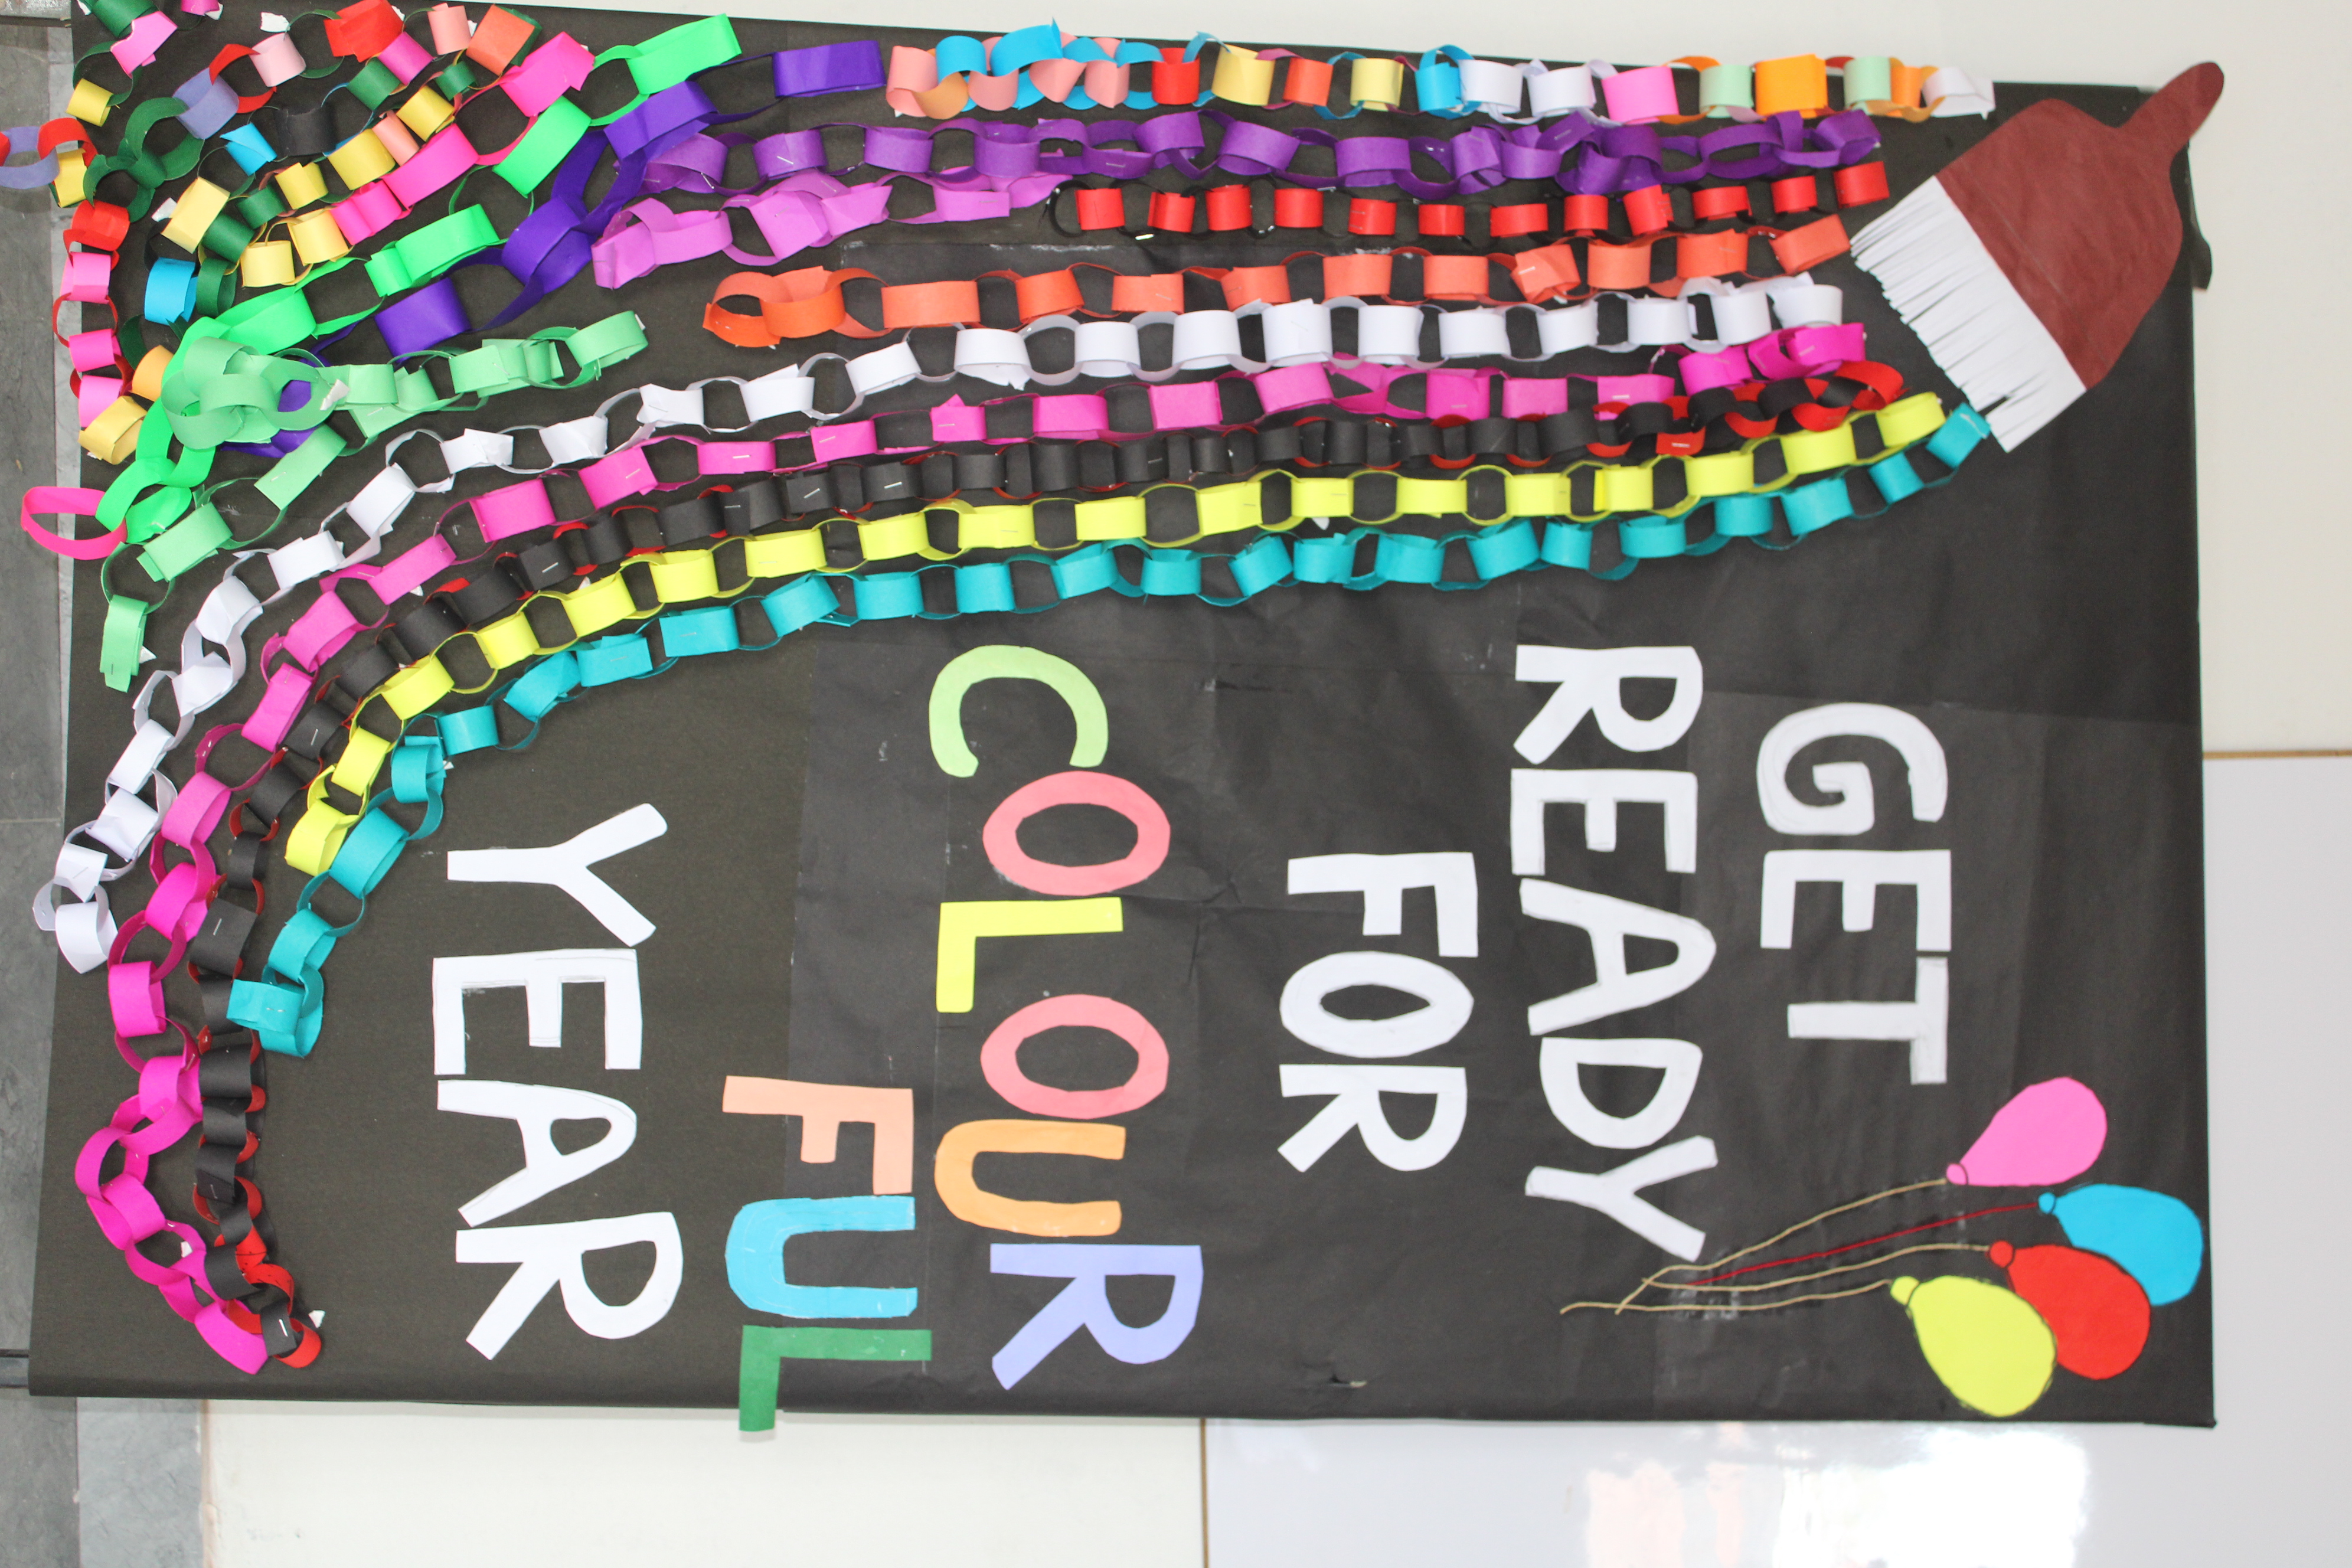 GET
READY
FOR
COLOUR
FUL
YEAR